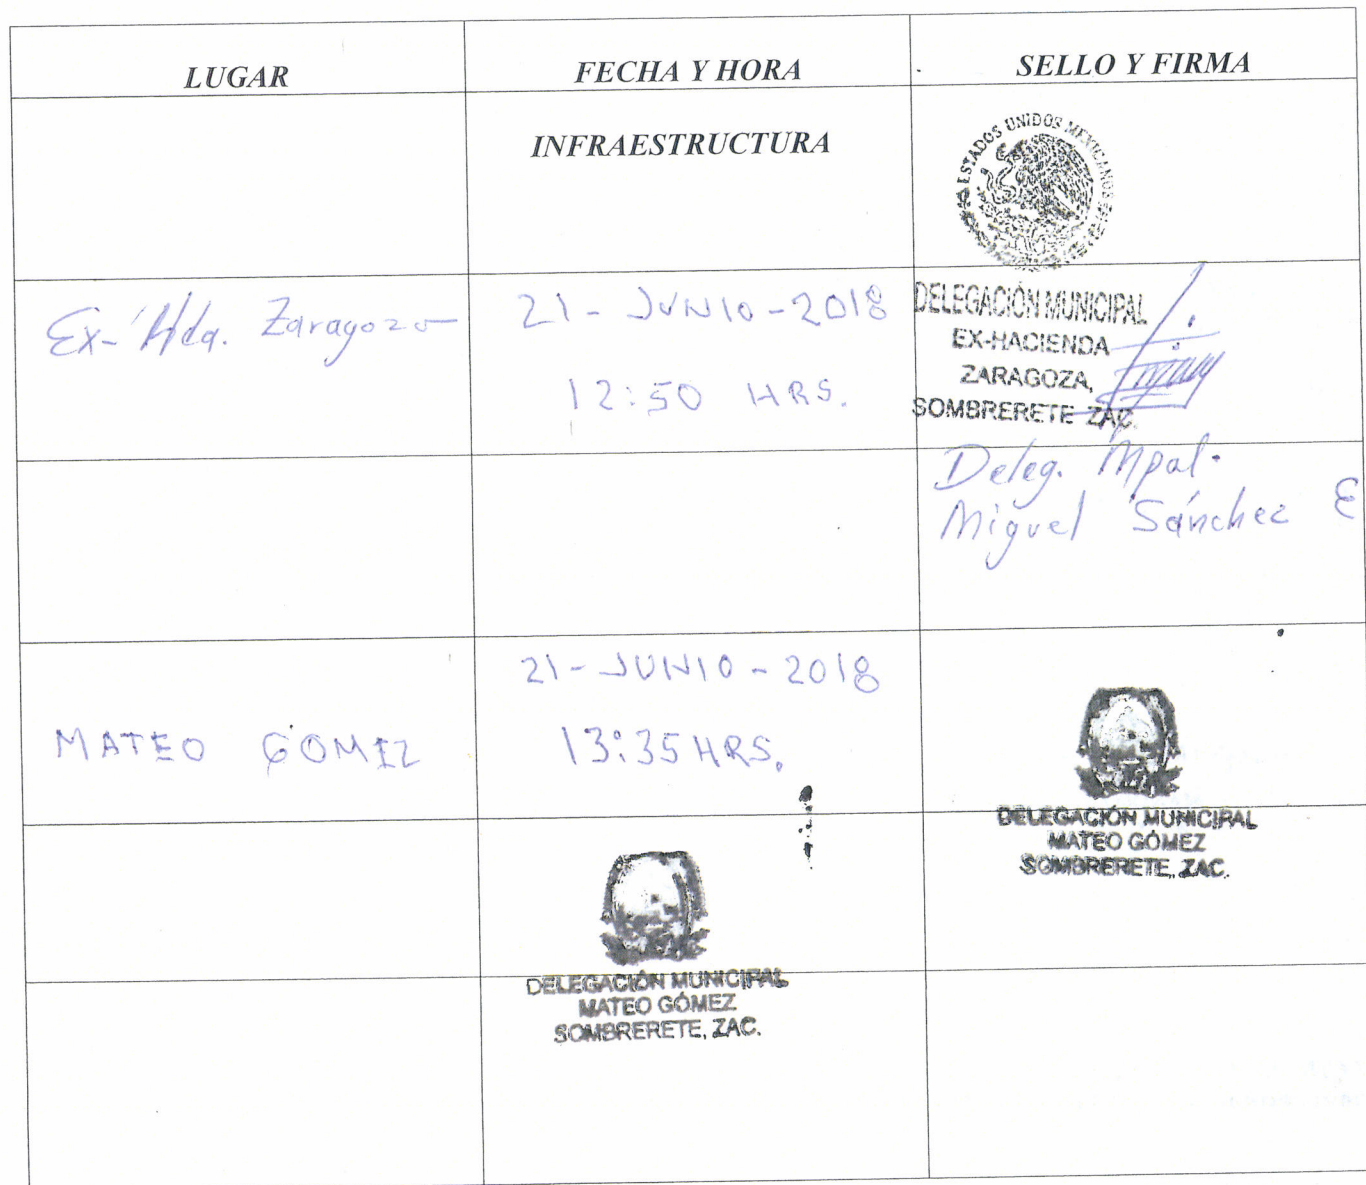 LUGAR
FECHA Y HORA
SELLO Y FIRMA
INFRAESTRUCTURA
ESTADOS UNIDOS MEXICANOS
Ex-Hda. Zaragoza
21-JUNIO-2018
12:50 HRS.
DELEGACIÓN MUNICIPAL
EX-HACIENDA
ZARAGOZA,
SOMBRERETE ZAC.
Deleg. Mpal.
Miguel Sánchez E
MATEO GOMEZ
21-JUNIO-2018
13:35 HRS.
DELEGACIÓN MUNICIPAL
MATEO GÓMEZ
SOMBRERETE, ZAC.
DELEGACIÓN MUNICIPAL
MATEO GÓMEZ
SOMBRERETE, ZAC.